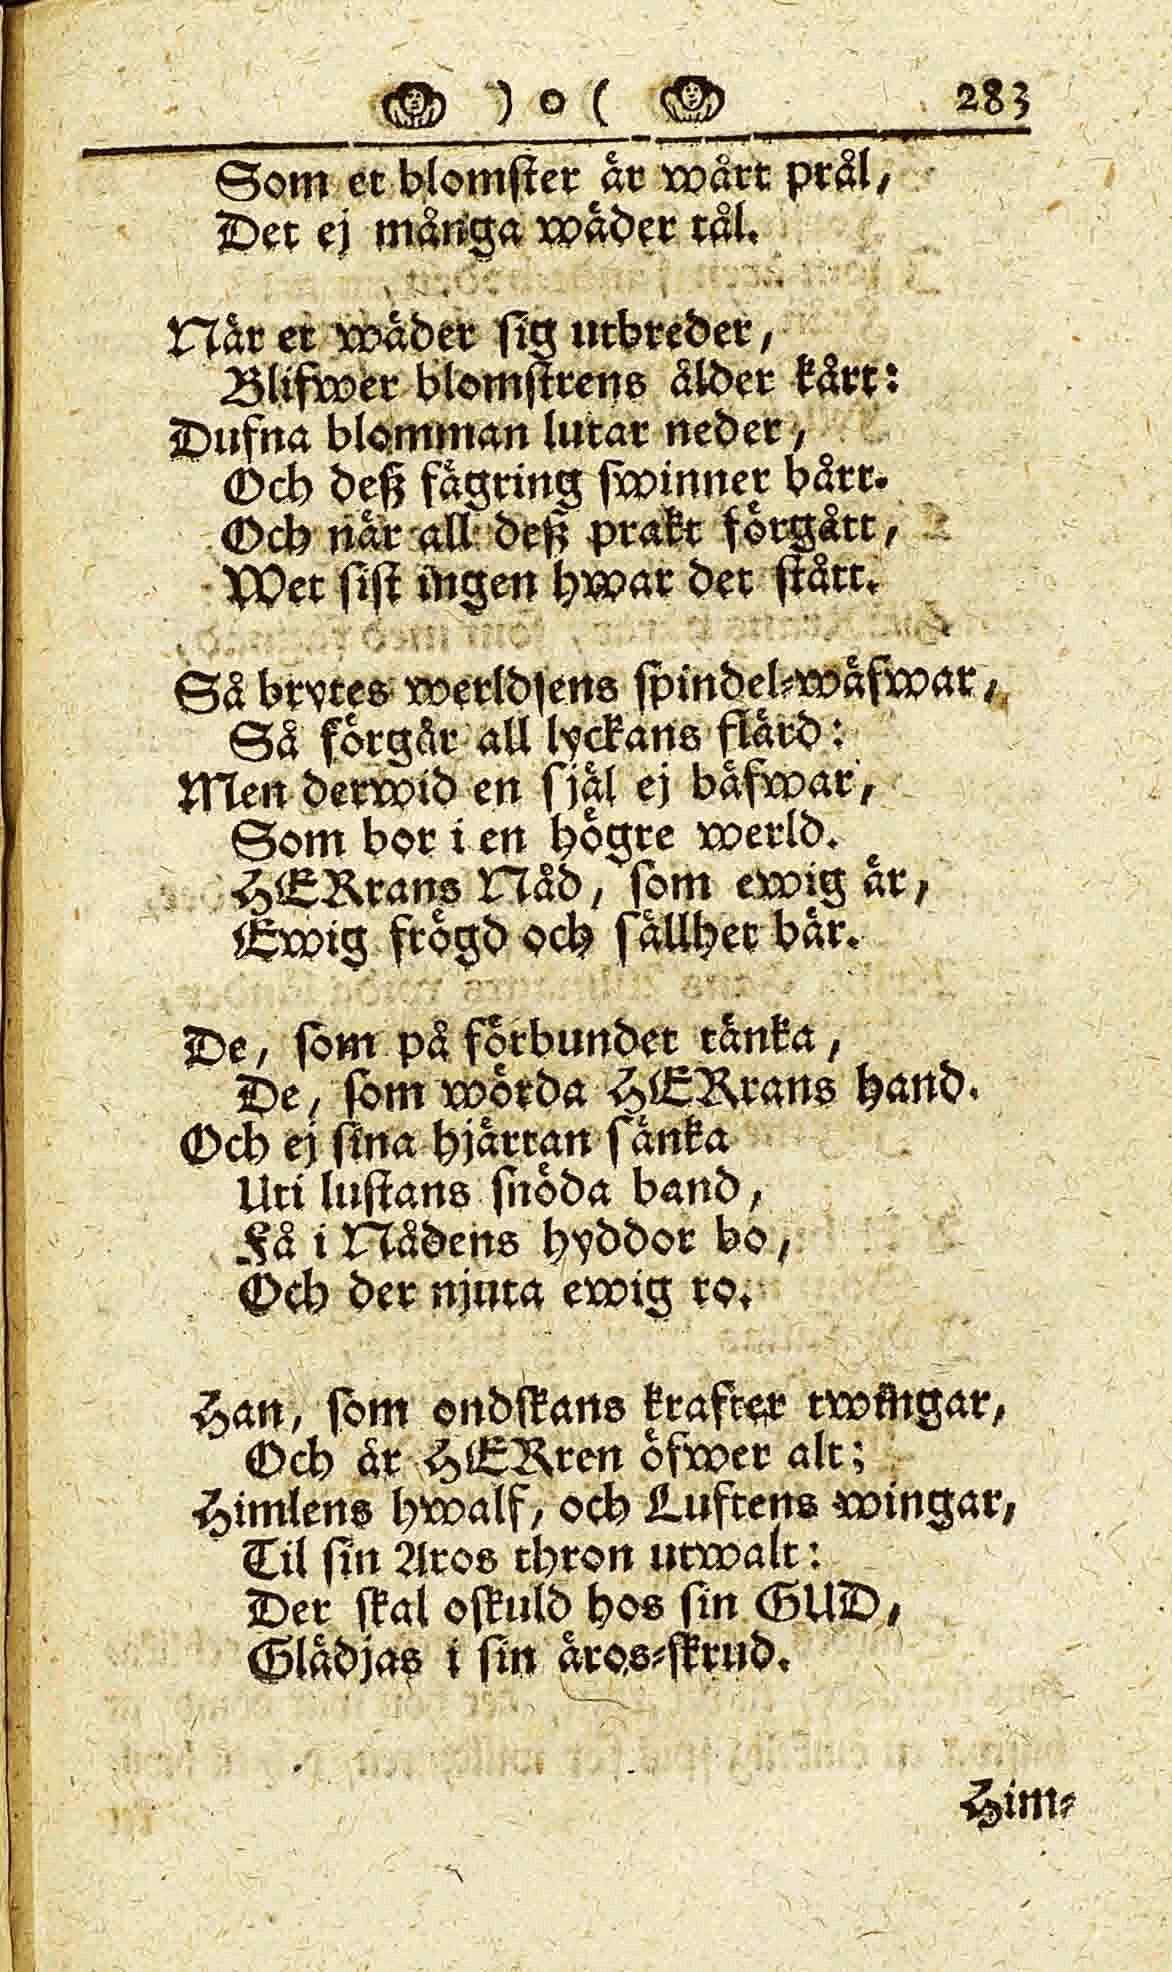 ) o ( 283
Som et blomster är wårt prål,
Det ej många wäder tål.
När et wäder sig utbreder,
Blifwer blomstrens ålder kårt:
Dufna blomman lutar neder,
Och deß fägring swinner bårt.
Och när all deß prakt förgått,
Wet sist ingen hwar det stått.
Så brytes werldsens spindel-wäfwar,
Så förgår all lyckans flärd:
Men derwid en själ ej bäfwar,
Som bor i en högre werld.
HERrans Nåd, som ewig är,
Ewig frögd och sällhet bär.
De, som på förbundet tänka,
De, som wörda HERrans hand.
Och ej sina hjärtan sänka
Uti lustans snöda band,
Få i Nådens hyddor bo,
Och der njuta ewig ro.
Han, som ondskans krafter twingar,
Och är HERren öfwer alt;
Himlens hwalf, och Luftens wingar,
Til sin Äros thron utwalt:
Der skal oskuld hos sin GUD,
Glädjas i sin äros-skrud.
Him-